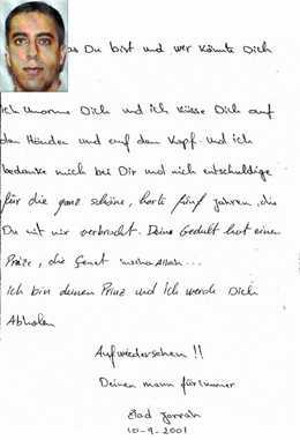 as Du bist und wer könnte Dich
Ich umarme Dich und ich küsse Dich auf
den Händen und auf dem Kopf. Und ich
bedanke mich bei Dir und mich entschuldige
für die ganz schöne, harte fünf Jahren, die
Du mit mir verbracht. Deine Gedult hat einen
Preize, die Genet inschaAllah...
Ich bin deinen Prinz und ich werde Dich
Abholen
Aufwiedersehen !!
Deinen mann für immer
Ziad Jarrah
10-9-2001